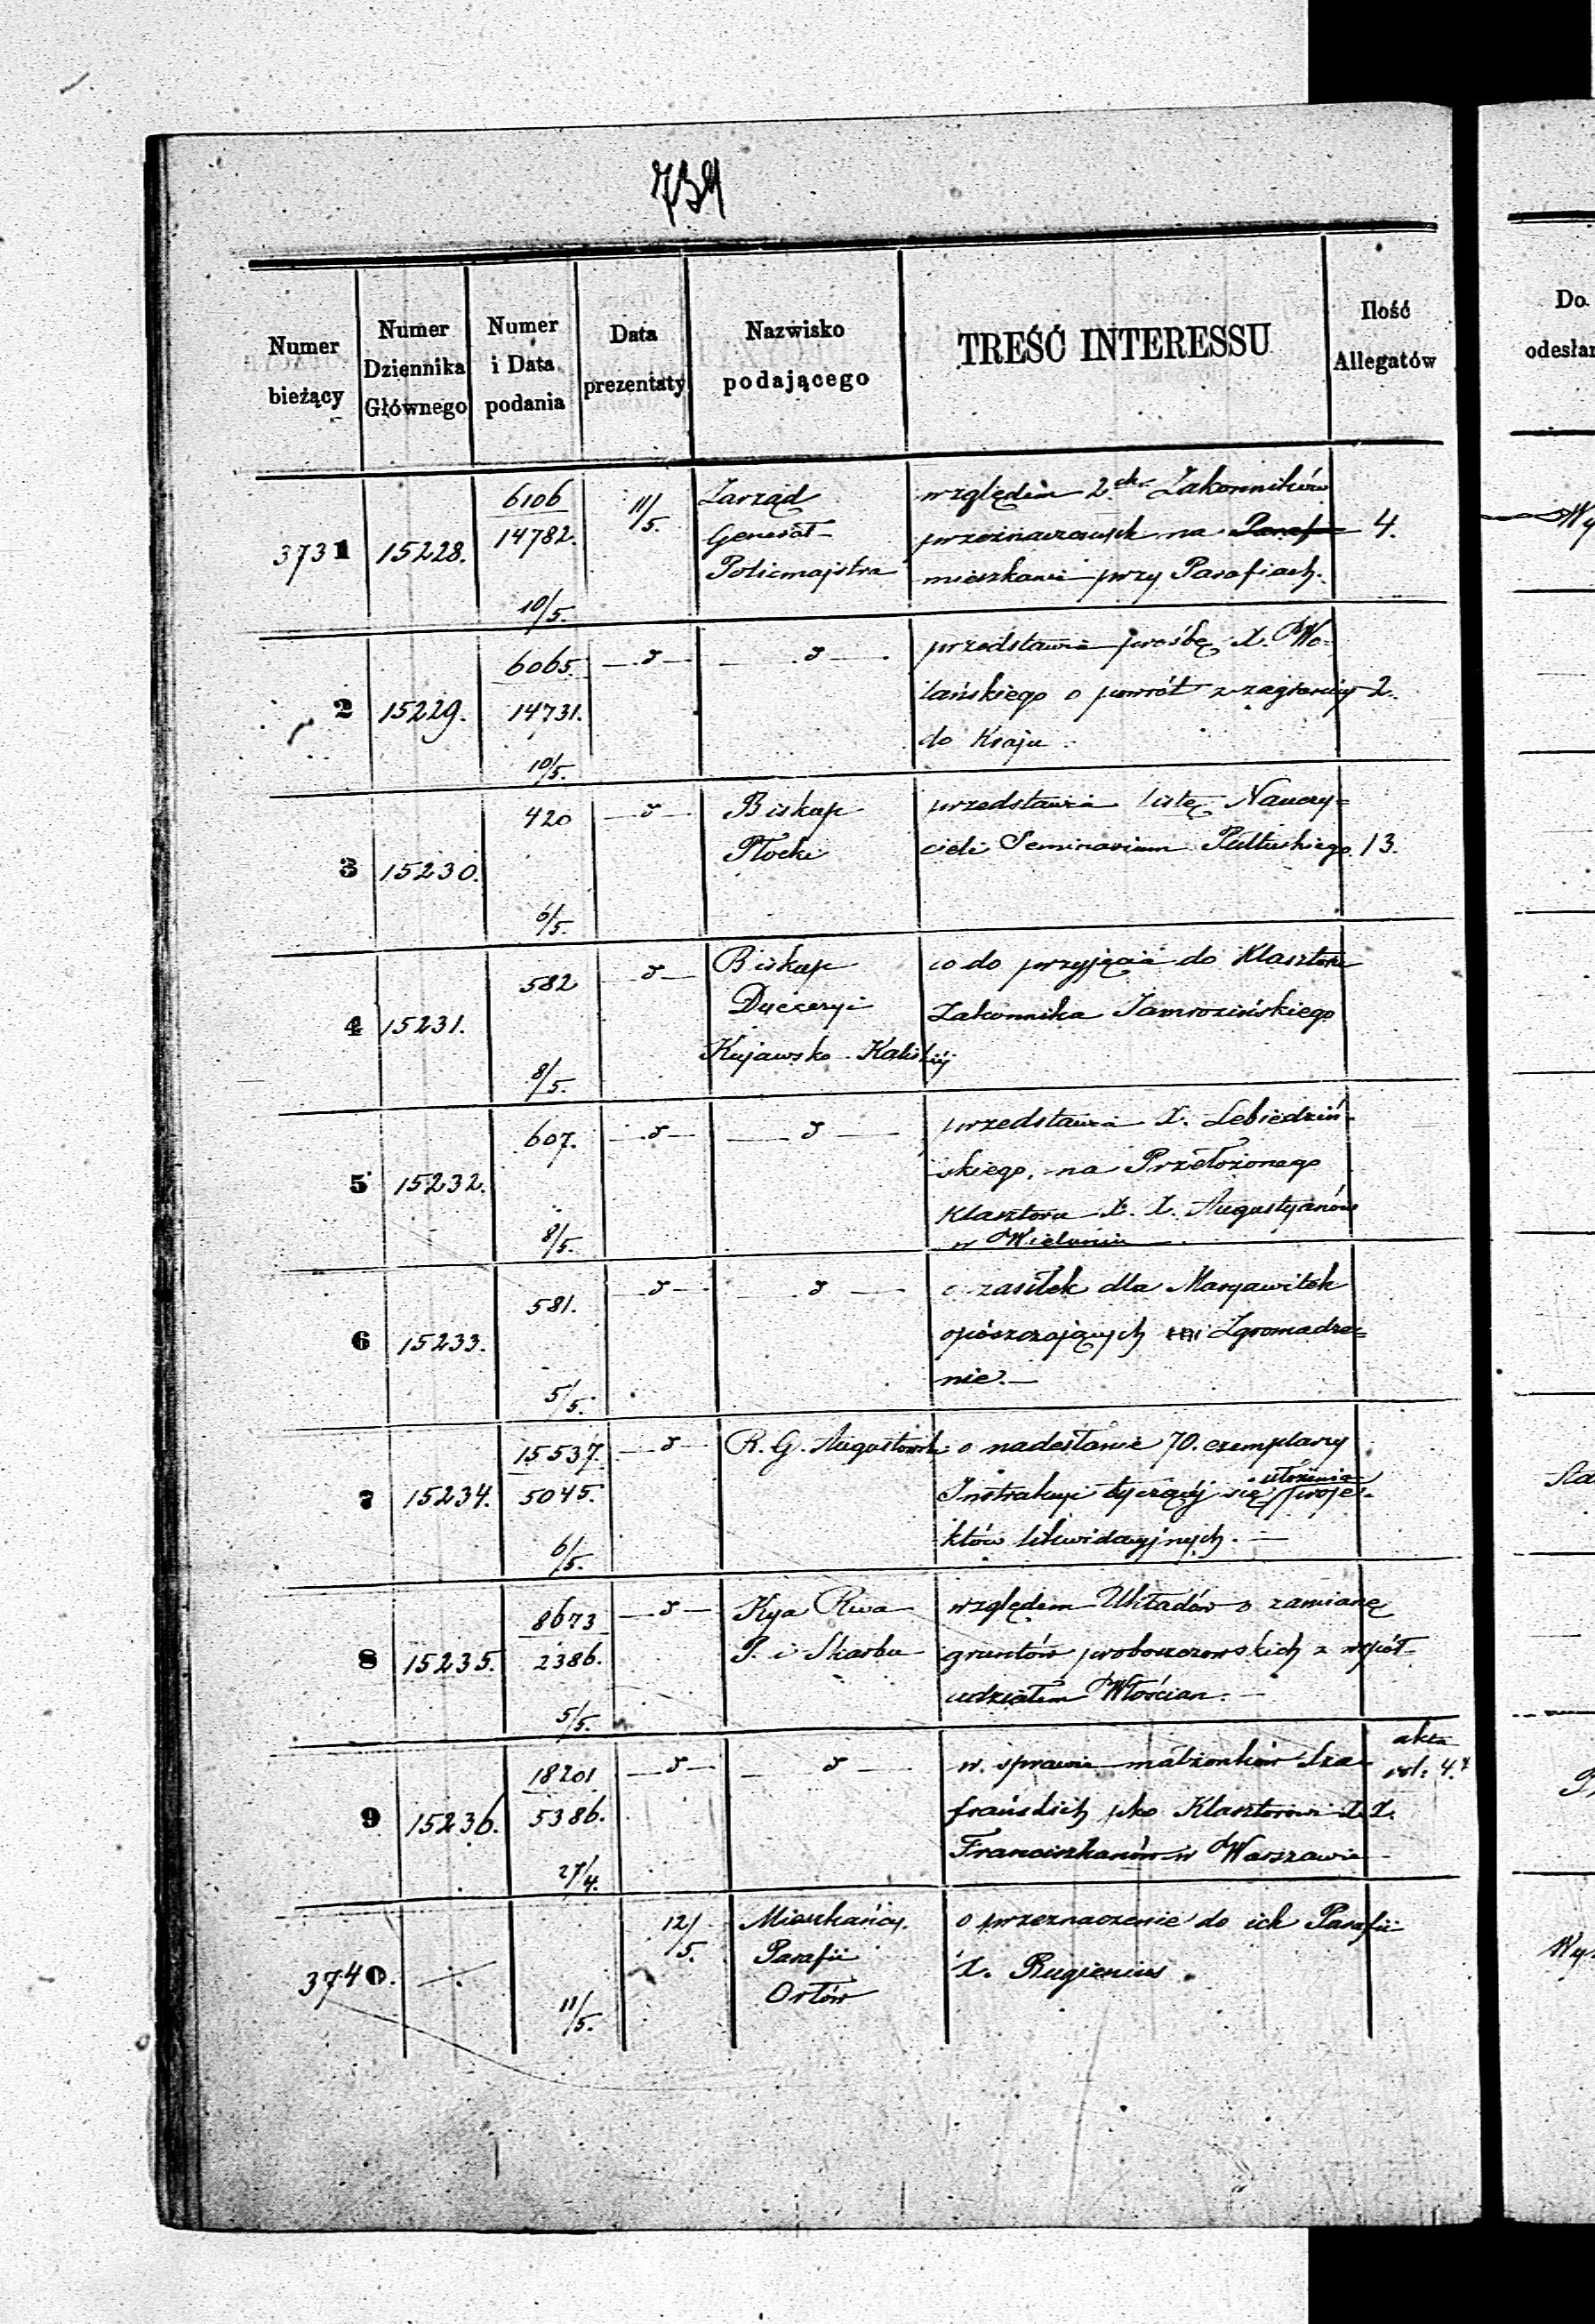 739
Numer bieżący
Numer Dziennika Głównego
Numer i Data podania
Data prezentaty
Nazwisko podającego
TREŚĆ INTERESSU
Ilość Allegatów
Do
odesłan
3731 15228. 6106 11/5. Zarząd względem 2ch Zakonników
14782. Generał- przeznaczonych na Paraf 4.
10/5. Policmajstra mieszkanie przy Parafiach.
2 15229. 6065. —d— —d— przedstawia prośbę X. Wo-
14731. lańskiego o powrót z zagranicy 2.
10/5. do Kraju.
3 15230. 420 —d— Biskup przedstawia listę Nauczy=
6/5. Płocki cieli Seminarium Pułtuskiego. 13.
4 15231. 582 —d— Biskup co do przyjęcia do Klasztoru
Dyecezyi Zakonnika Jamrozińskiego
8/5. Kujawsko-Kaliskiéj
5 15232. 607. —d— —d— przedstawia X. Lebiedziń-
skiego, na Przełożonego
Klasztoru X. X. Augustyanów
8/5. w Wieluniu
6 15233. 581. —d— —d— o zasiłek dla Maryawitek
opószczających Zgromadze=
5/5. nie.—
7 15234. 15537. —d— R. G. Augustowski o nadesłanie 70. exemplarzy
5045. Instrukcyi tyczącéj się ułożenia proje-
6/5. któw likwidacyjnych. —
8 15235. 8673 —d— Kya Rwa względem Układów o zamianę
2386. P. i Skarbu gruntów proboszczowskich z współ-
5/5. udziałem Włościan. —
9 15236. 18201 —d— —d— w sprawie małżonków Sza- akta vol: 4.
5386. frańskich pko Klasztorowi X. X.
27/4. Franciszkanów w Warszawie
3740. ÷ 12/5. Mieszkańcy o przeznaczenie do ich Parafii
Parafii X. Rugienius.
11/5. Orłów